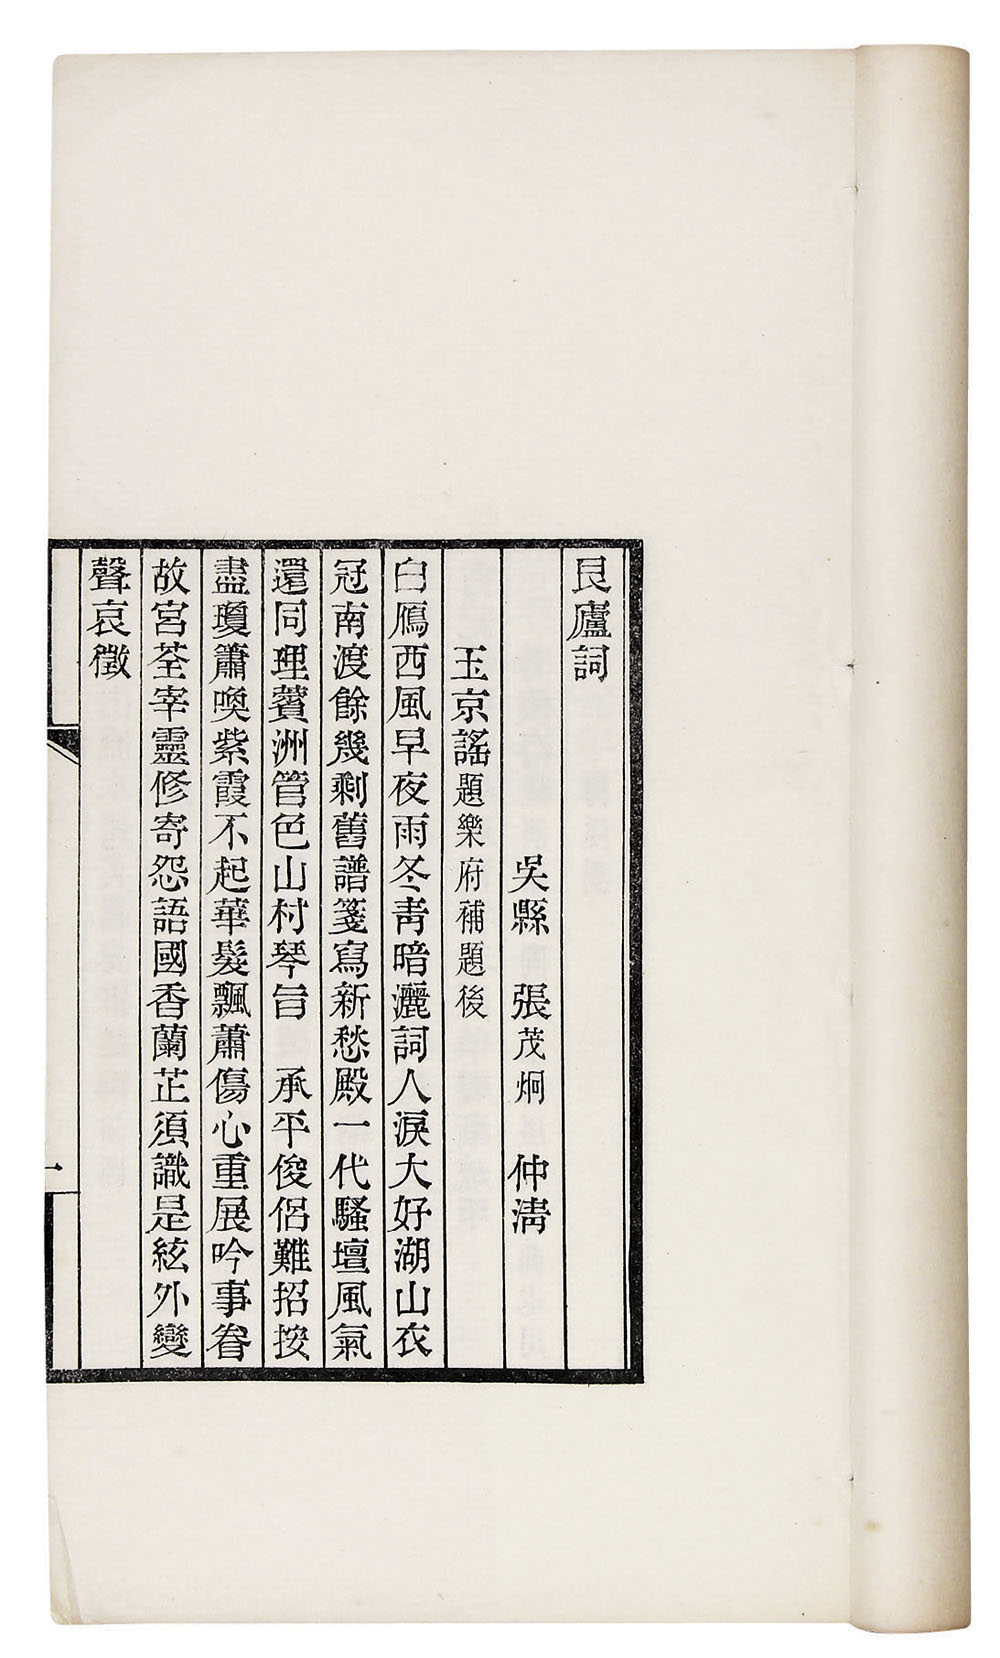 艮廬詞
吳縣　張茂炯　仲清
玉京謠題樂府補題後
白鴈西風早夜雨冬青暗灑詞人淚大好湖山衣
冠南渡餘幾剩舊譜箋寫新愁殿一代騷壇風氣
還同理薲洲管色山村琴旨　承平俊侶難招按
盡瓊簫喚紫霞不起華髮飄蕭傷心重展吟事眷
故宮荃宰靈修寄怨語國香蘭芷須識是絃外變
聲哀徵
一